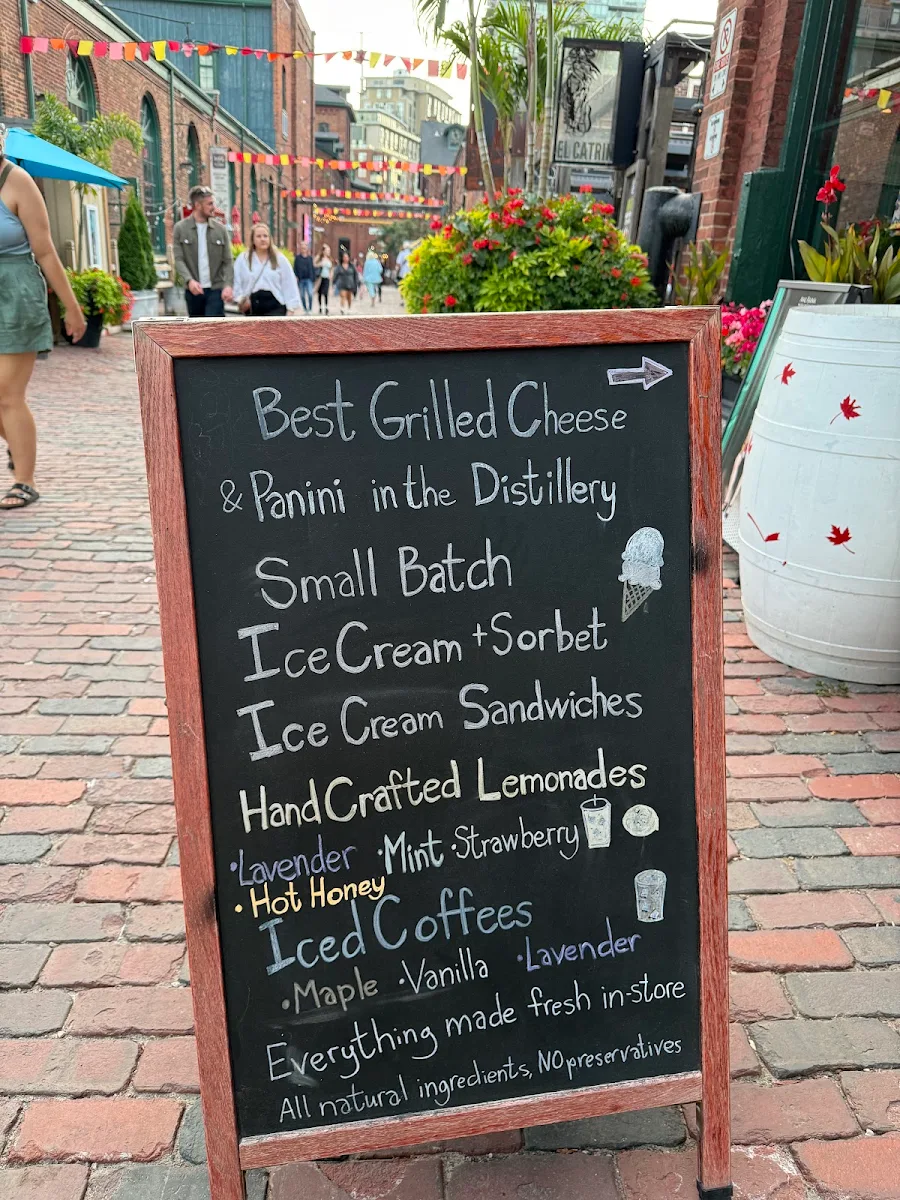 EL CATRIN
Best Grilled Cheese
& Panini in the Distillery
Small Batch
Ice Cream + Sorbet
Ice Cream Sandwiches
HandCrafted Lemonades
•Lavender •Mint •Strawberry
•Hot Honey
Iced Coffees
•Maple •Vanilla •Lavender
Everything made fresh in-store
All natural ingredients, NO preservatives